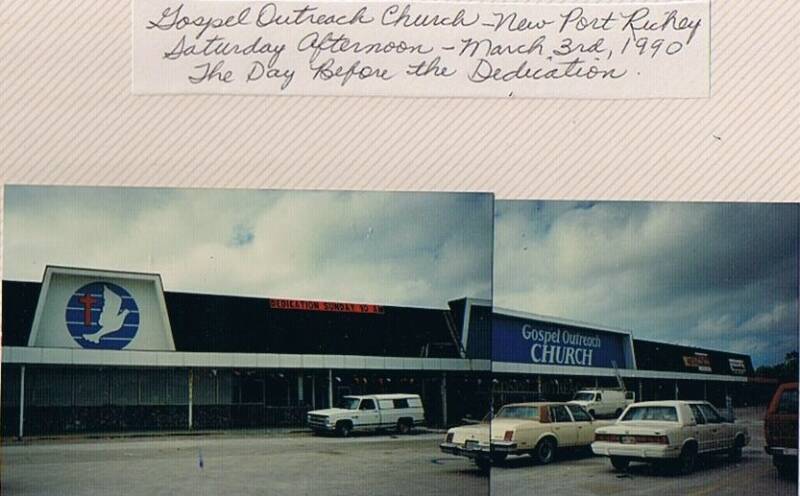 Gospel Outreach Church - New Port Richey
Saturday Afternoon - March 3rd, 1990
The Day Before the Dedication.
DEDICATION SUNDAY 10 AM
Gospel Outreach
CHURCH